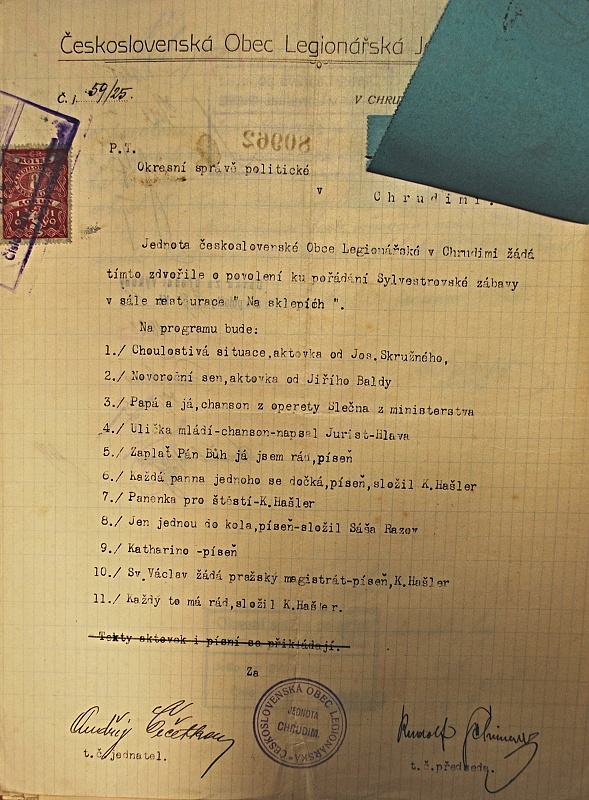 Československá Obec Legionářská
Č. j. 59/25.
V CHRU
80962
P.T.
Okresní správě politické
v
Chrudimi.
Jednota československé Obce Legionářské v Chrudimi žádá
tímto zdvořile o povolení ku pořádání Sylvestrovské zábavy
v sále restaurace " Na sklepích ".
Na programu bude:
1./ Choulostivá situace,aktovka od Jos.Skružného,
2./ Novoroční sen,aktovka od Jiřího Baldy
3./ Papá a já,chanson z operety Slečna z ministerstva
4./ Ulička mládí-chanson-napsal Jurist-Hlava
5./ Zaplať Pán Bůh já jsem rád,píseň
6./ Každá panna jednoho se dočká,píseň,složil K.Hašler
7./ Panenka pro štěstí-K.Hašler
8./ Jen jednou do kola,píseň-složil Sáša Razov
9./ Katharino -píseň
10./ Sv.Václav žádá pražský magistrát-píseň,K.Hašler
11./ Každý to má rád,složil K.Hašler.
Texty aktovek i písní se přikládají.
Za
ČESKOSLOVENSKÁ OBEC LEGIONÁŘSKÁ
JEDNOTA
CHRUDIM.
Rudolf
t.č.jednatel.
t.č.předseda.